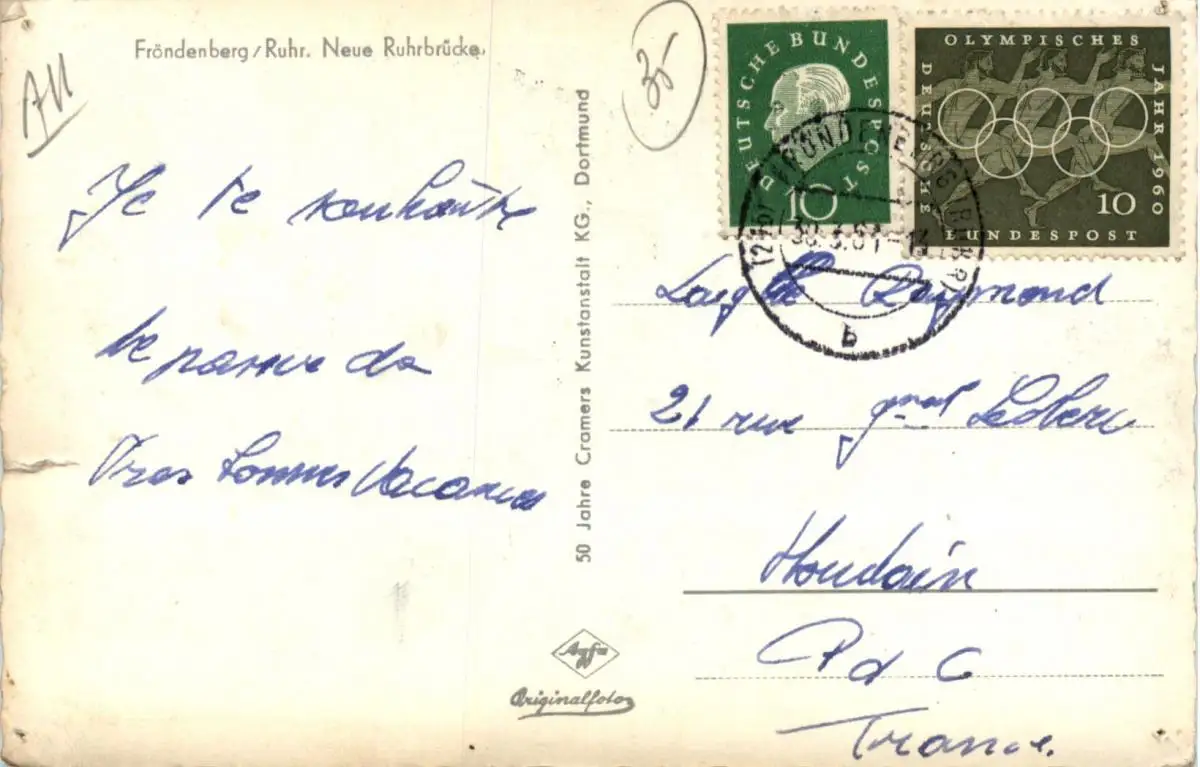 Fröndenberg/Ruhr. Neue Ruhrbrücke
All
Je te souhaite
de passer de
Tres bonnes Vacances
50 Jahre Cramers Kunstanstalt KG., Dortmund
Agfa
Originalfoto
35,-
DEUTSCHE BUNDESPOST
10
OLYMPISCHES
JAHR 1960
DEUTSCHE
BUNDESPOST
10
FRÖNDENBERG (RUHR)
30.3.61-13
b
Raymond
21 rue gnal Leclerc
Houdain
P d C
France.